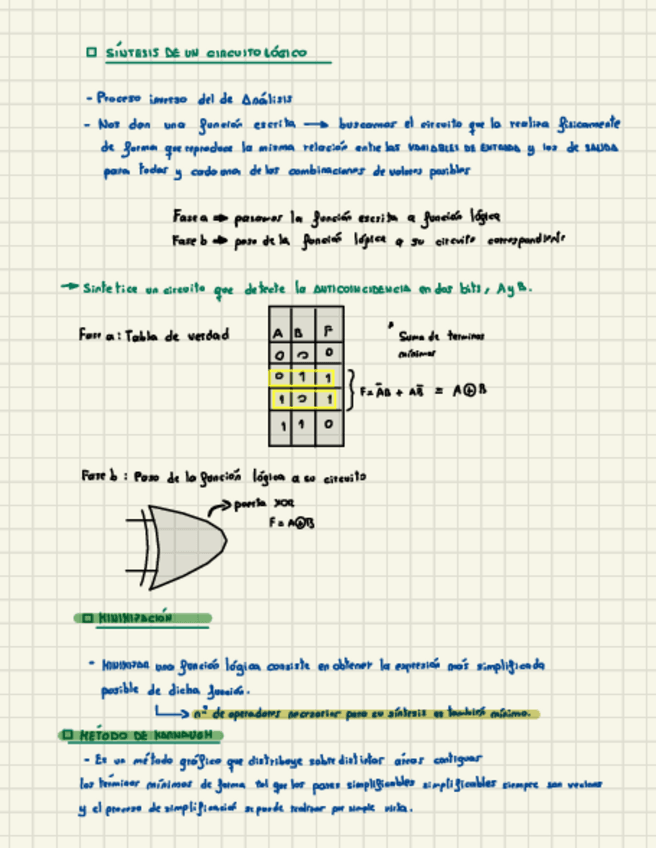 SÍNTESIS DE UN CIRCUITO LÓGICO
- Proceso inverso del de Análisis
- Nos dan una función escrita → buscamos el circuito que la realiza físicamente
de forma que reproduce la misma relación entre las VARIABLES DE ENTRADA y las de SALIDA
para todas y cada una de las combinaciones de valores posibles
Fase a ⇒ pasamos la función escrita a función lógica
Fase b ⇒ paso de la función lógica a su circuito correspondiente
→ Sintetice un circuito que detecte la ANTICOINCIDENCIA en dos bits, A y B.
Fase a: Tabla de verdad
A B F
0 0 0
0 1 1
1 0 1
1 1 0
* Suma de terminos
mínimos
F = A̅B + AB̅ = A⊕B
Fase b : Paso de la función lógica a su circuito
puerta XOR
F = A⊕B
MINIMIZACIÓN
- MINIMIZAR una función lógica consiste en obtener la expresión más simplificada
posible de dicha función.
nº de operadores necesarios para su síntesis es también mínimo.
MÉTODO DE KARNAUGH
- Es un método gráfico que distribuye sobre distintas áreas contiguas
los términos mínimos de forma tal que los pares simplificables simplificables siempre son vecinos
y el proceso de simplificación se puede realizar por simple vista.